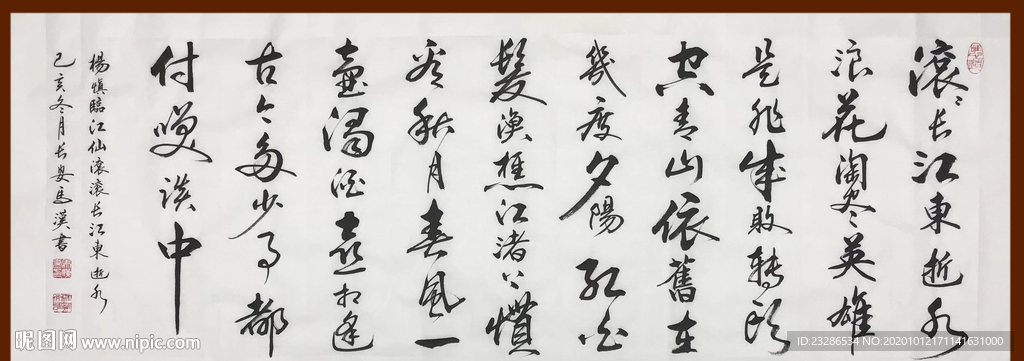 滚滚长江東逝水
浪花淘尽英雄
是非成敗转頭
空青山依舊在
幾度夕陽红白
髮渔樵江渚上慣
看秋月春風一
壶濁酒喜相逢
古今多少事都
付笑谈中
楊慎臨江仙滚滚长江東逝水
己亥冬月长安馬漢書
昵图网 www.nipic.com
ID:23286534 NO:20201012171141631000